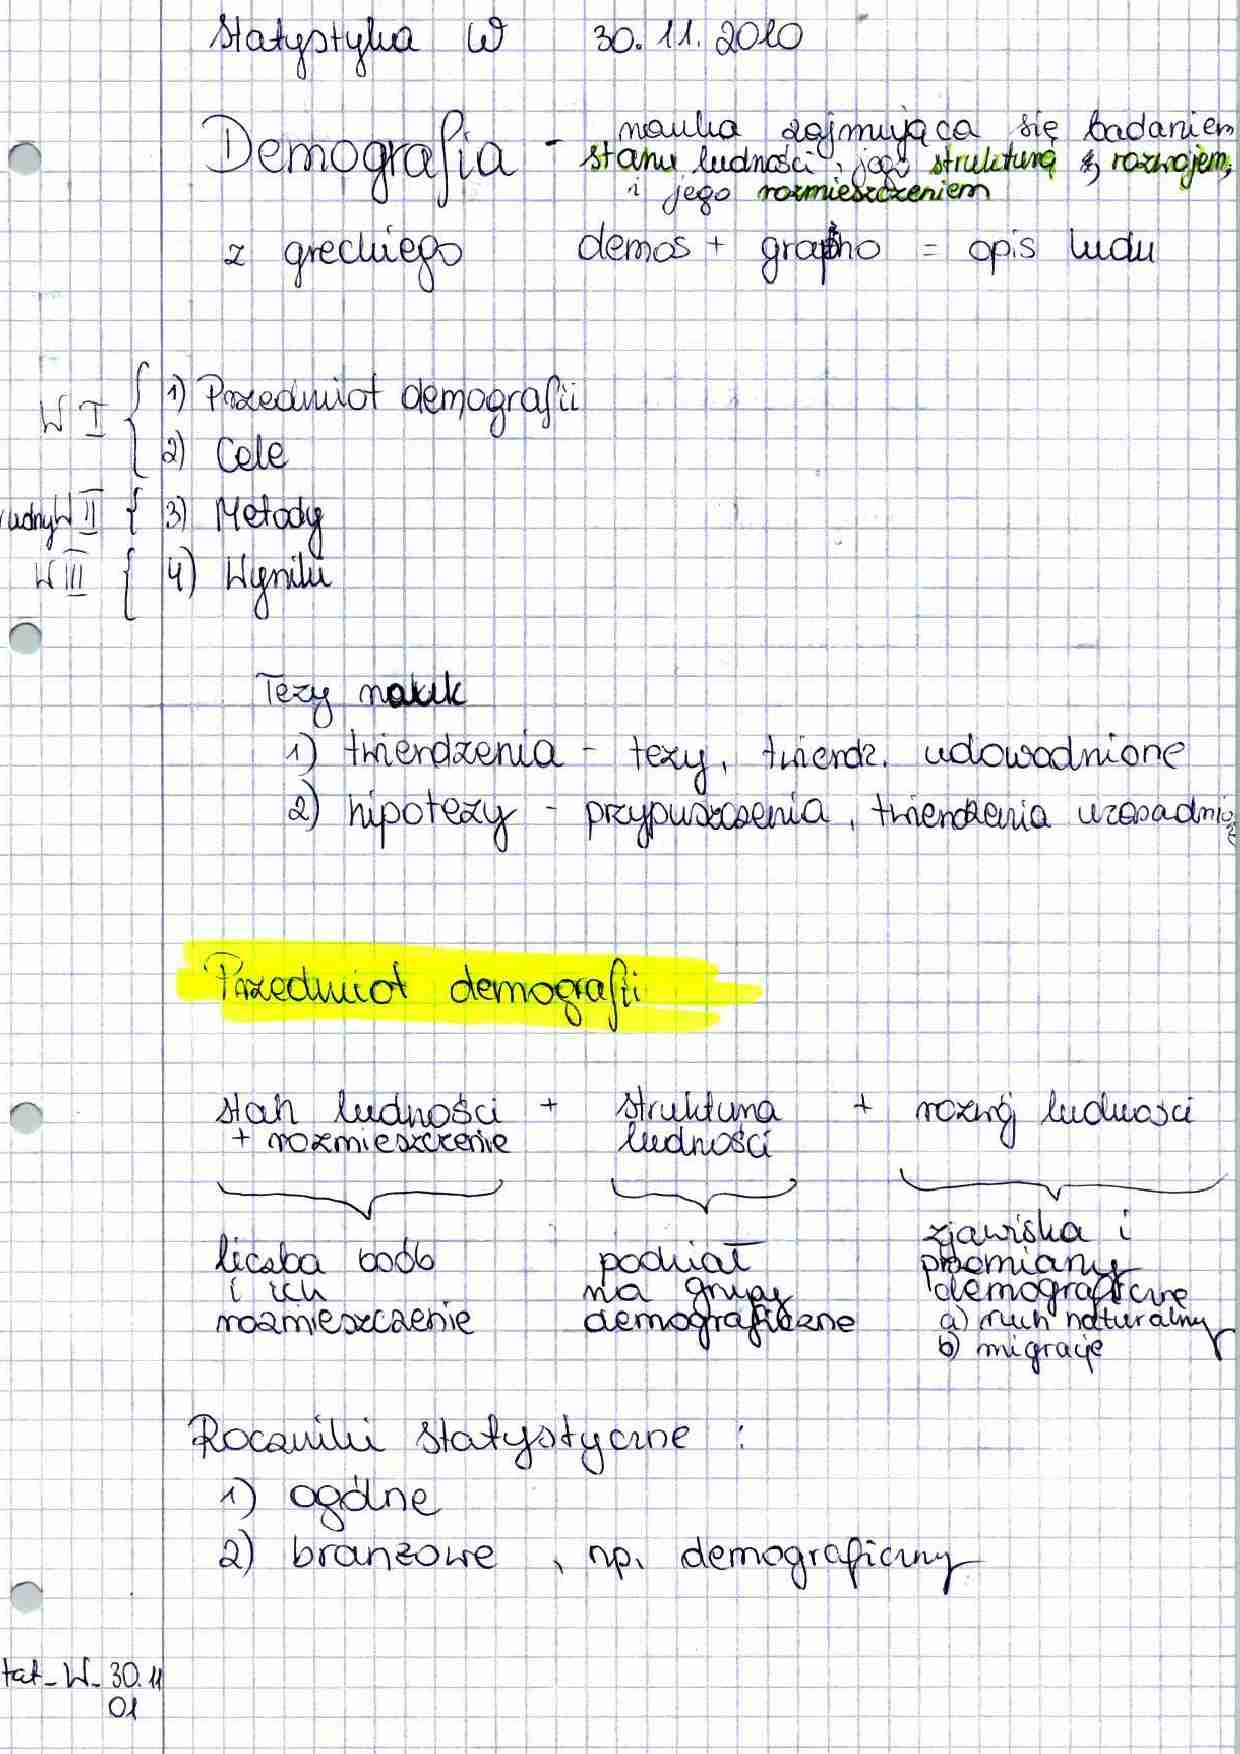 Statystyka W 30.11.2010
Demografia - nauka zajmująca się badaniem
stanu ludności, jego strukturą, rozwojem,
i jego rozmieszczeniem
z greckiego demos + grapho = opis ludu
W I { 1) Przedmiot demografii
2) Cele
trudny W II { 3) Metody
W III { 4) Wyniki
Tezy nauk
1) twierdzenia - tezy, twierdz. udowodnione
2) hipotezy - przypuszczenia, twierdzenia
Przedmiot demografii
stan ludności + struktura + rozwój ludności
+ rozmieszczenie ludności
liczba osób podział zjawiska i
i ich na grupy przemiany
rozmieszczenie demograficzne demograficzne
a) ruch naturalny
b) migracje
Roczniki statystyczne :
1) ogólne
2) branżowe, np. demograficzny
tat_W_30.11
01